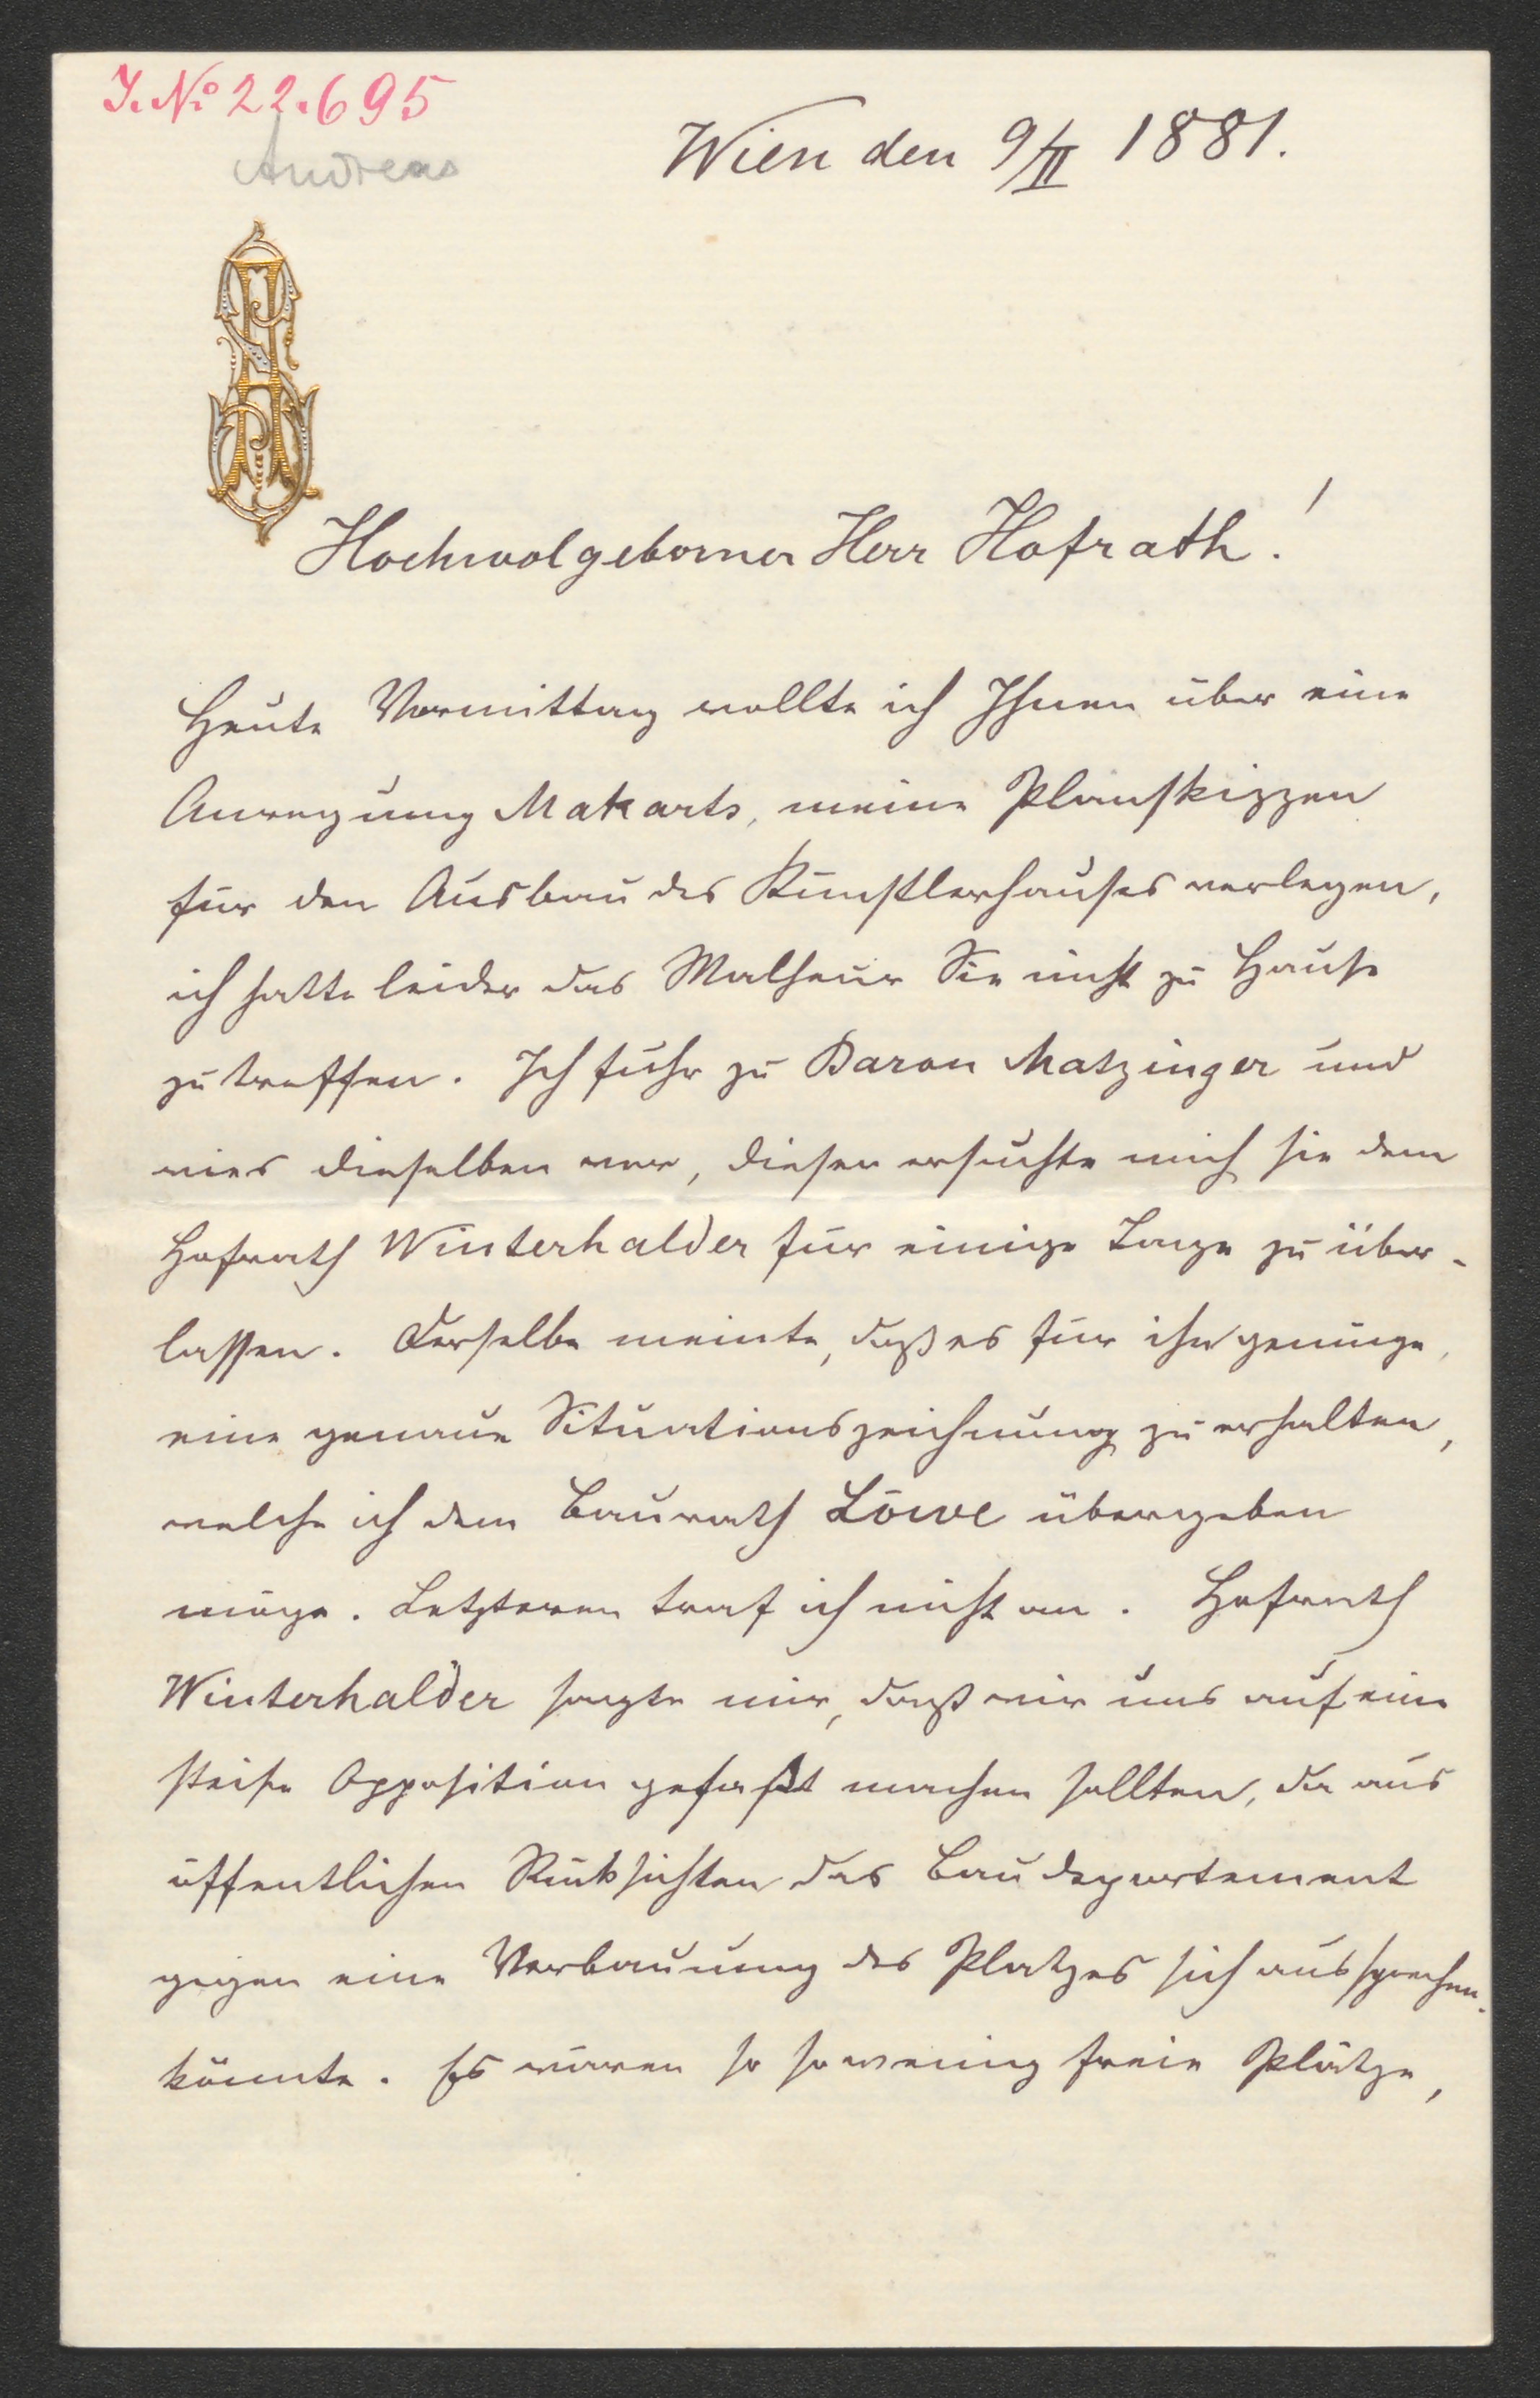 I. No 22.695
Andreas
Wien den 9/II 1881.
Hochwolgeborner Herr Hofrath!
Heute Vormittag wollte ich Ihnen über eine
Anregung Makarts, meine Planskizzen
für den Ausbau des Künstlerhauses vorlegen,
ich hatte leider das Malheur Sie nicht zu Hause
zu treffen. Ich fuhr zu Baron Matzinger und
wies dieselben vor, dieser ersuchte mich sie dem
Hofrath Winterhalder für einige Tage zu über-
lassen. Derselbe meinte, daß es für ihn genüge,
eine genaue Situationszeichnung zu erhalten,
welche ich dem Baurath Löwe übergeben
möge. Letzteren traf ich nicht an. Hofrath
Winterhalder sagte mir, daß wir uns auf eine
steife Opposition gefaßt machen sollten, da aus
öffentlichen Rücksichten das Baudepartement
gegen eine Verbauung des Platzes sich aussprechen
könnte. Es wären so so wenig freie Plätze,